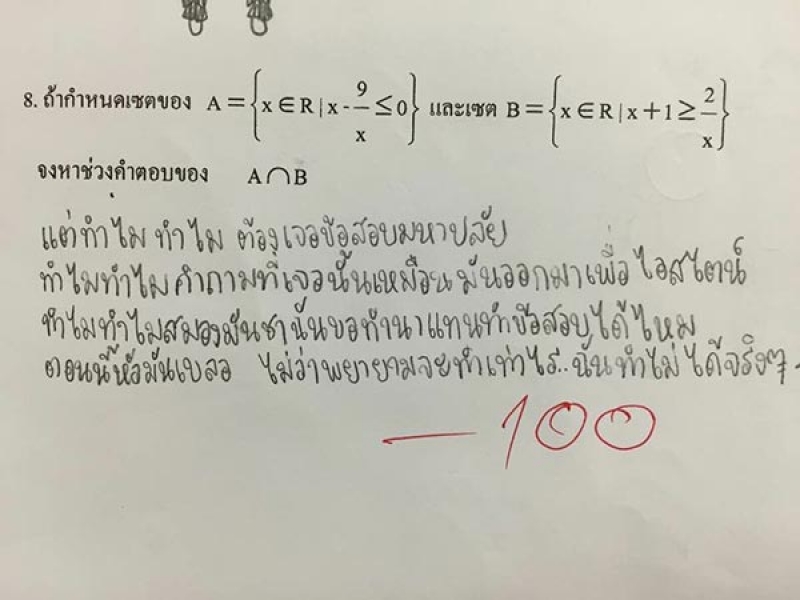 8. ถ้ากำหนดเซตของ A = {x ∈ R | x - 9/x ≤ 0} และเซต B = {x ∈ R | x + 1 ≥ 2/x}
จงหาช่วงคำตอบของ A ∩ B
แต่ทำไม ทำไม ต้องเจอข้อสอบมหาปลัย
ทำไมทำไมคำถามที่เจอนั้นเหมือนมันออกมาเพื่อไอสไตน์
ทำไมทำไมสมองมันชานั้นขอทำนาแทนทำข้อสอบได้ไหม
ตอนนี้หัวมันเบลอ ไม่ว่าพยายามจะทำเท่าไร..ฉันทำไม่ได้จริงๆ
-100